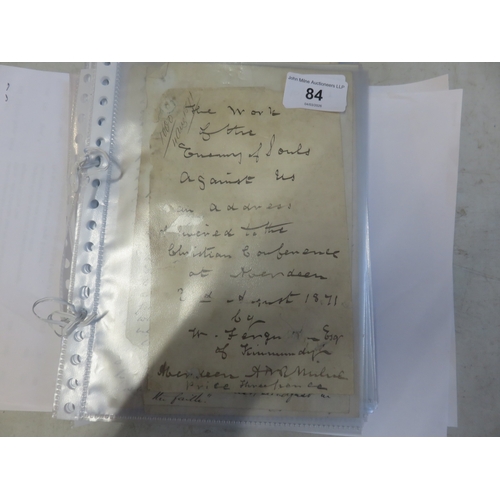 John Milne Auctioneers LLP
84
The Work
of the
Enemy of Souls
Against Us
An Address
delivered to the
Christian Conference
at Aberdeen
August 1871
by
W. Esqr
of Kinmundy
Aberdeen A & R Milne
Price Threepence
the